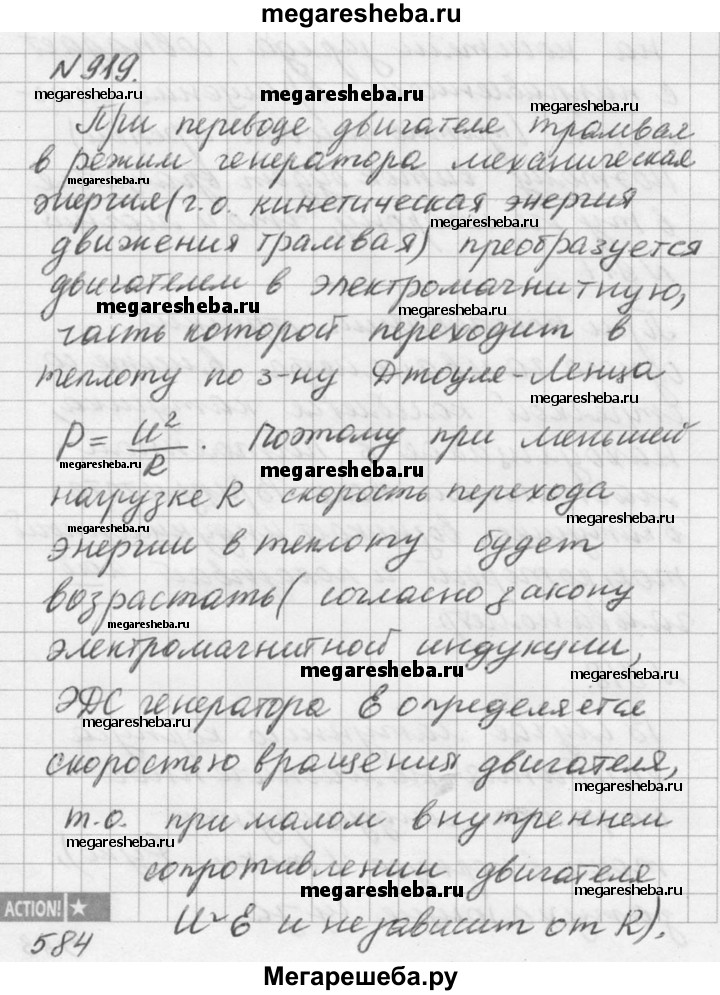 megaresheba.ru
N 919.
megaresheba.ru megaresheba.ru megaresheba.ru
При переводе двигателе трамвая
в режим генератора механическая
megaresheba.ru
энергия (т.о. кинетическая энергия
megaresheba.ru
движения трамвая) преобразуется
двигателем в электромагнитную,
megaresheba.ru megaresheba.ru
часть которой переходит в
теплоту по з-ну Джоуля-Ленца
P = U²/R. Поэтому при меньшей
megaresheba.ru megaresheba.ru
нагрузке R скорость перехода
megaresheba.ru megaresheba.ru
энергии в теплоту будет
возрастать (согласно закону
megaresheba.ru
электромагнитной индукции,
megaresheba.ru megaresheba.ru
ЭДС генератора E определяется
megaresheba.ru
скоростью вращения двигателя,
megaresheba.ru
т.о. при малом внутреннем
megaresheba.ru
сопротивлении двигателя
megaresheba.ru megaresheba.ru
ACTION!
U~E и не зависит от R).
584
Мегарешеба.ру